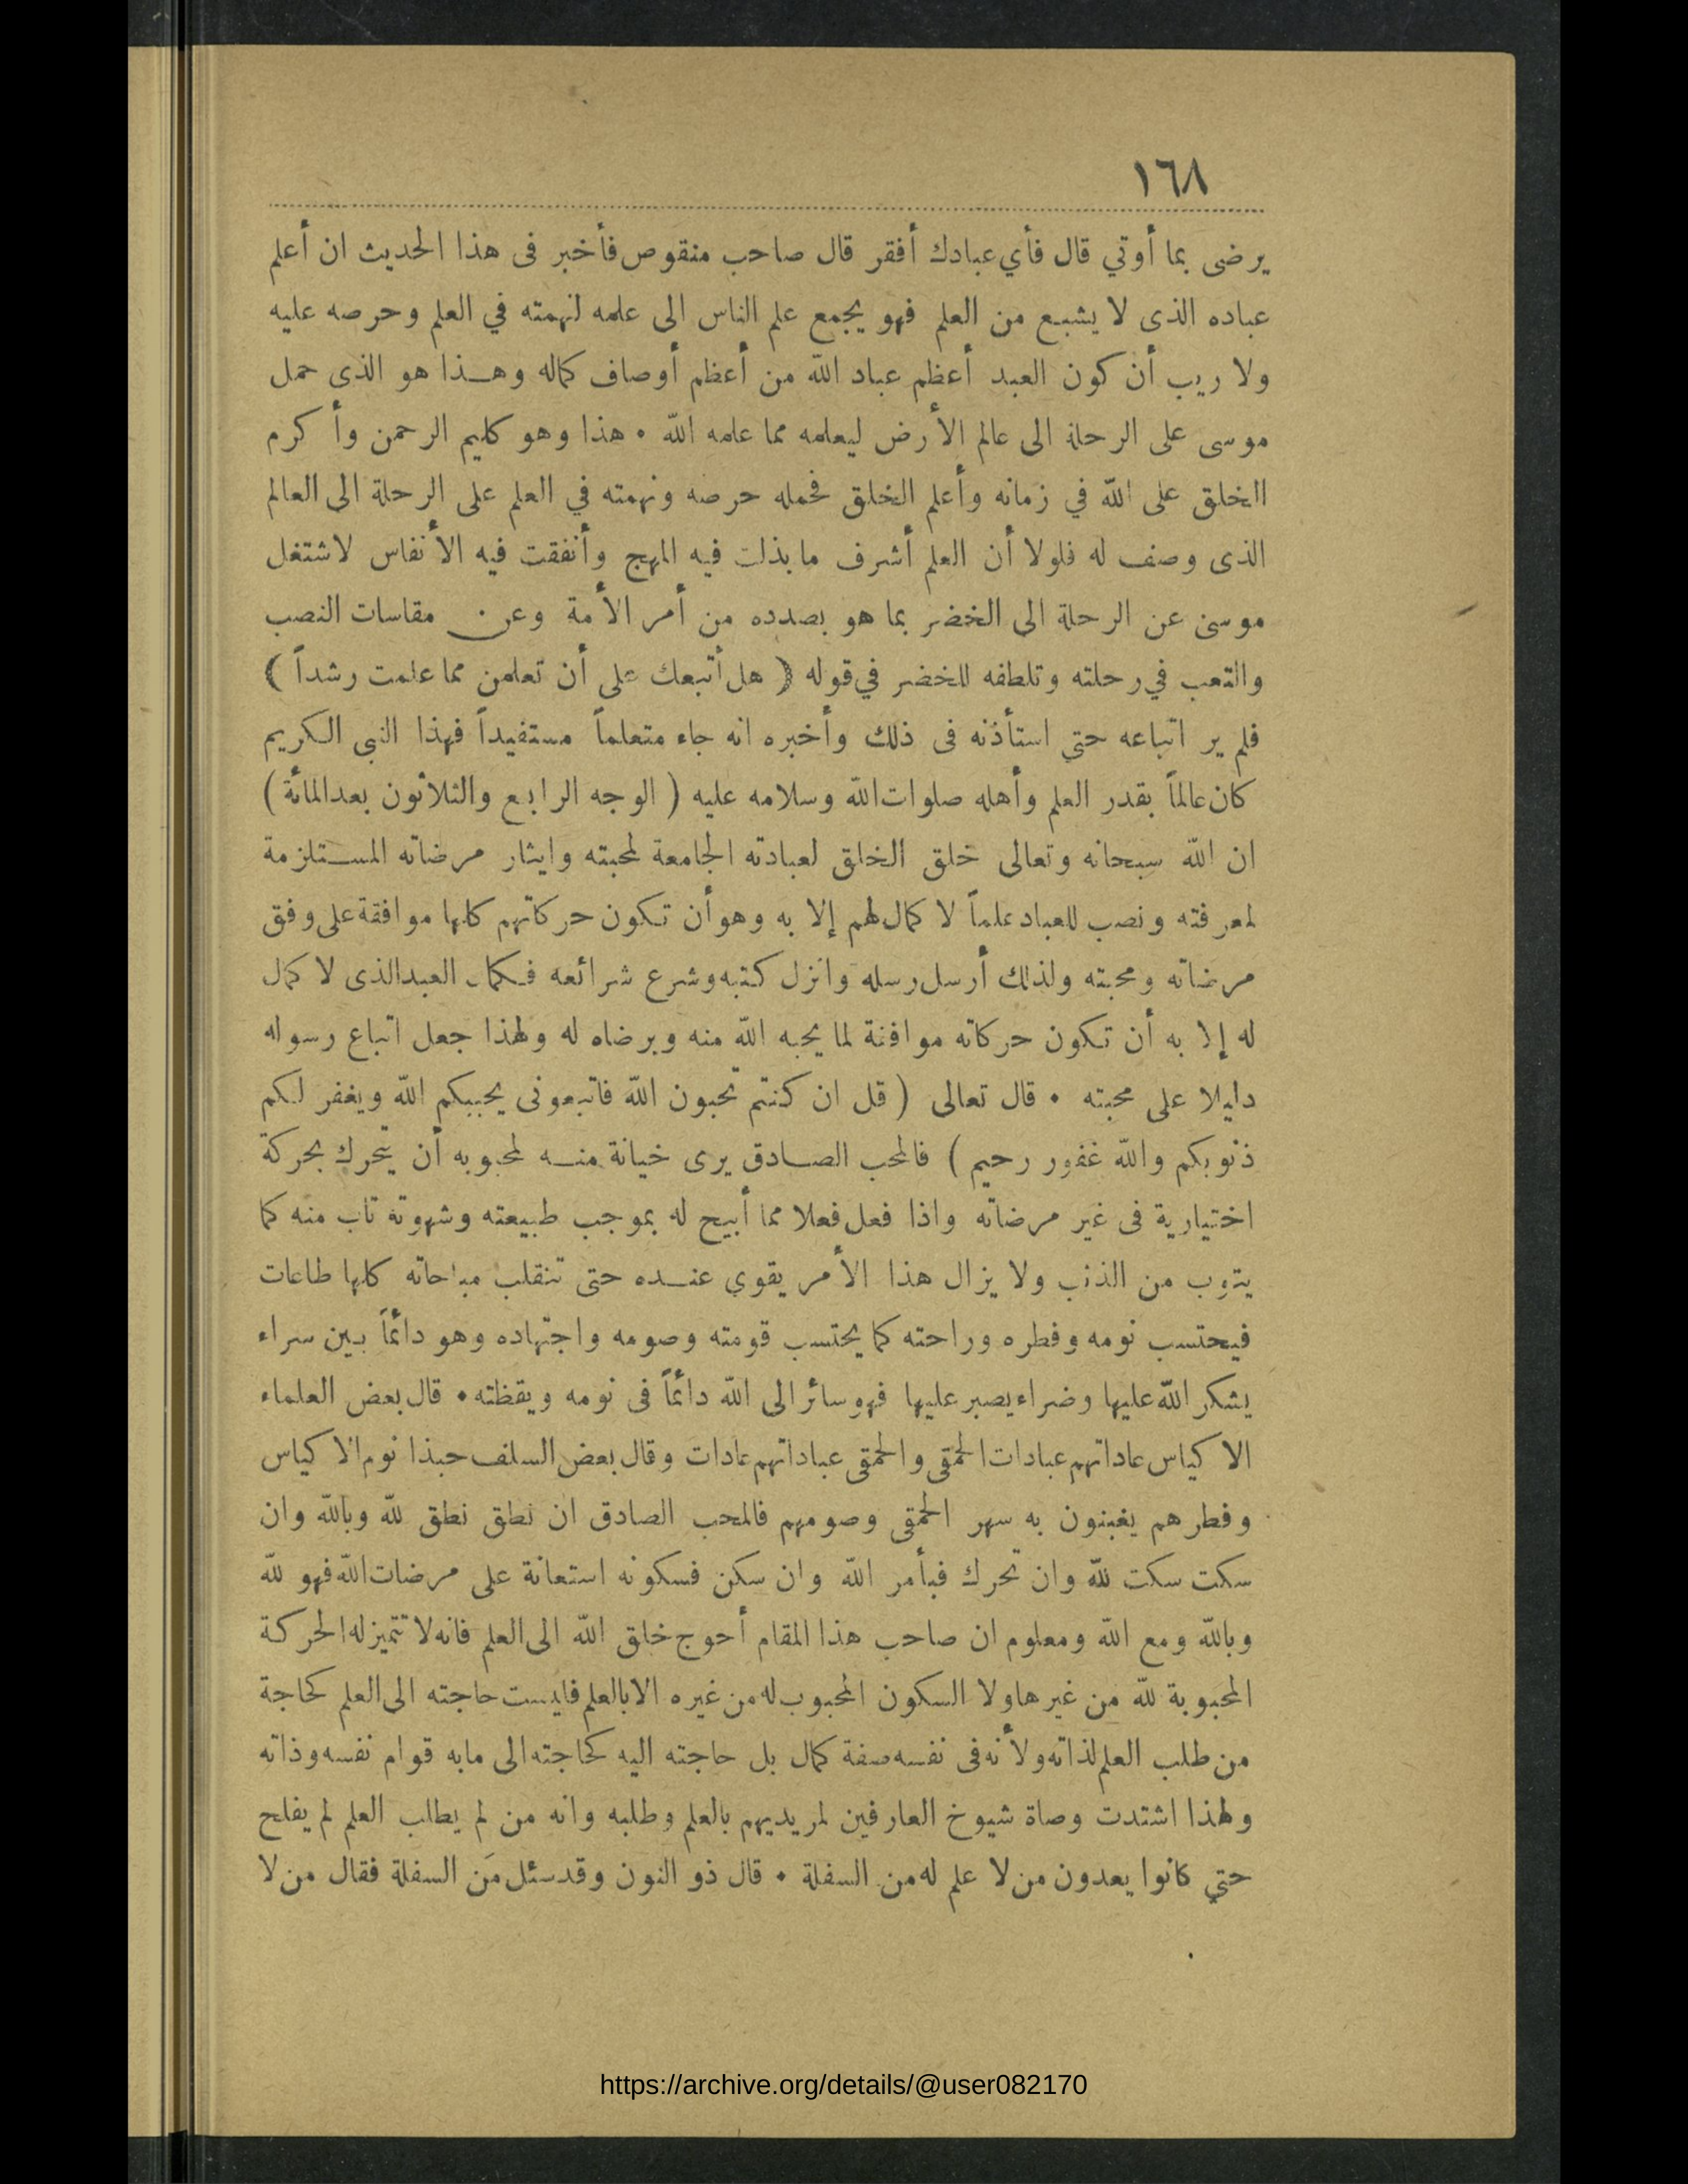 ١٦٨
يرضى بما أوتي قال فأي عبادك أفقر قال صاحب منقوص فأخبر فى هذا الحديث ان أعلم
عباده الذى لا يشبع من العلم فهو يجمع علم الناس الى علمه لنهمته في العلم وحرصه عليه
ولا ريب أن كون العبد أعظم عباد الله من أعظم أوصاف كماله وهـذا هو الذى حمل
موسى على الرحلة الى عالم الأرض ليعلمه مما علمه الله • هذا وهو كليم الرحمن وأكرم
الخلق على الله في زمانه وأعلم الخلق فحمله حرصه ونهمته في العلم على الرحلة الى العالم
الذى وصف له فلولا أن العلم أشرف ما بذلت فيه المهج وأنفقت فيه الأنفاس لاشتغل
موسى عن الرحلة الى الخضر بما هو بصدده من أمر الأمة وعن مقاسات النصب
والتعب في رحلته وتلطفه للخضر في قوله ( هل أتبعك على أن تعلمن مما علمت رشداً )
فلم ير اتباعه حتي استأذنه فى ذلك وأخبره انه جاء متعلماً مستفيداً فهذا النبى الكريم
كان عالماً بقدر العلم وأهله صلوات الله وسلامه عليه ( الوجه الرابع والثلاثون بعد المائة )
ان الله سبحانه وتعالى خلق الخلق لعبادته الجامعة لمحبته وايثار مرضاته المسـتلزمة
لمعرفته ونصب للعباد علماً لا كمال لهم إلا به وهو أن تكون حركاتهم كلها موافقة على وفق
مرضاته ومحبته ولذلك أرسل رسله وانزل كتبه وشرع شرائعه فكمال العبد الذى لا كمال
له إلا به أن تكون حركاته موافقة لما يحبه الله منه ويرضاه له ولهذا جعل اتباع رسوله
دليلا على محبته • قال تعالى ( قل ان كنتم تحبون الله فاتبعونى يحببكم الله ويغفر لكم
ذنوبكم والله غفور رحيم ) فالمحب الصـادق يرى خيانة منـه لمحبوبه أن يتحرك بحركة
اختيارية فى غير مرضاته واذا فعل فعلا مما أبيح له بموجب طبيعته وشهوته تاب منه كما
يتوب من الذنب ولا يزال هذا الأمر يقوي عنـده حتى تنقلب مباحاته كلها طاعات
فيحتسب نومه وفطره وراحته كما يحتسب قومته وصومه واجتهاده وهو دائماً بين سراء
يشكر الله عليها وضراء يصبر عليها فهو سائر الى الله دائماً فى نومه ويقظته • قال بعض العلماء
الاكياس عاداتهم عبادات الحمقى والحمقى عباداتهم عادات وقال بعض السلف حبذا نوم الاكياس
وفطرهم يغبنون به سهر الحمقى وصومهم فالمحب الصادق ان نطق نطق لله وبالله وان
سكت سكت لله وان تحرك فبأمر الله وان سكن فسكونه استعانة على مرضات الله فهو لله
وبالله ومع الله ومعلوم ان صاحب هذا المقام أحوج خلق الله الى العلم فانه لا تتميز له الحركة
المحبوبة لله من غيرها ولا السكون المحبوب له من غيره الا بالعلم فليست حاجته الى العلم كحاجة
من طلب العلم لذاته ولأنه فى نفسه صفة كمال بل حاجته اليه كحاجته الى مابه قوام نفسه وذاته
ولهذا اشتدت وصاة شيوخ العارفين لمريديهم بالعلم وطلبه وانه من لم يطلب العلم لم يفلح
حتي كانوا يعدون من لا علم له من السفلة • قال ذو النون وقد سئل مَن السفلة فقال من لا
https://archive.org/details/@user082170